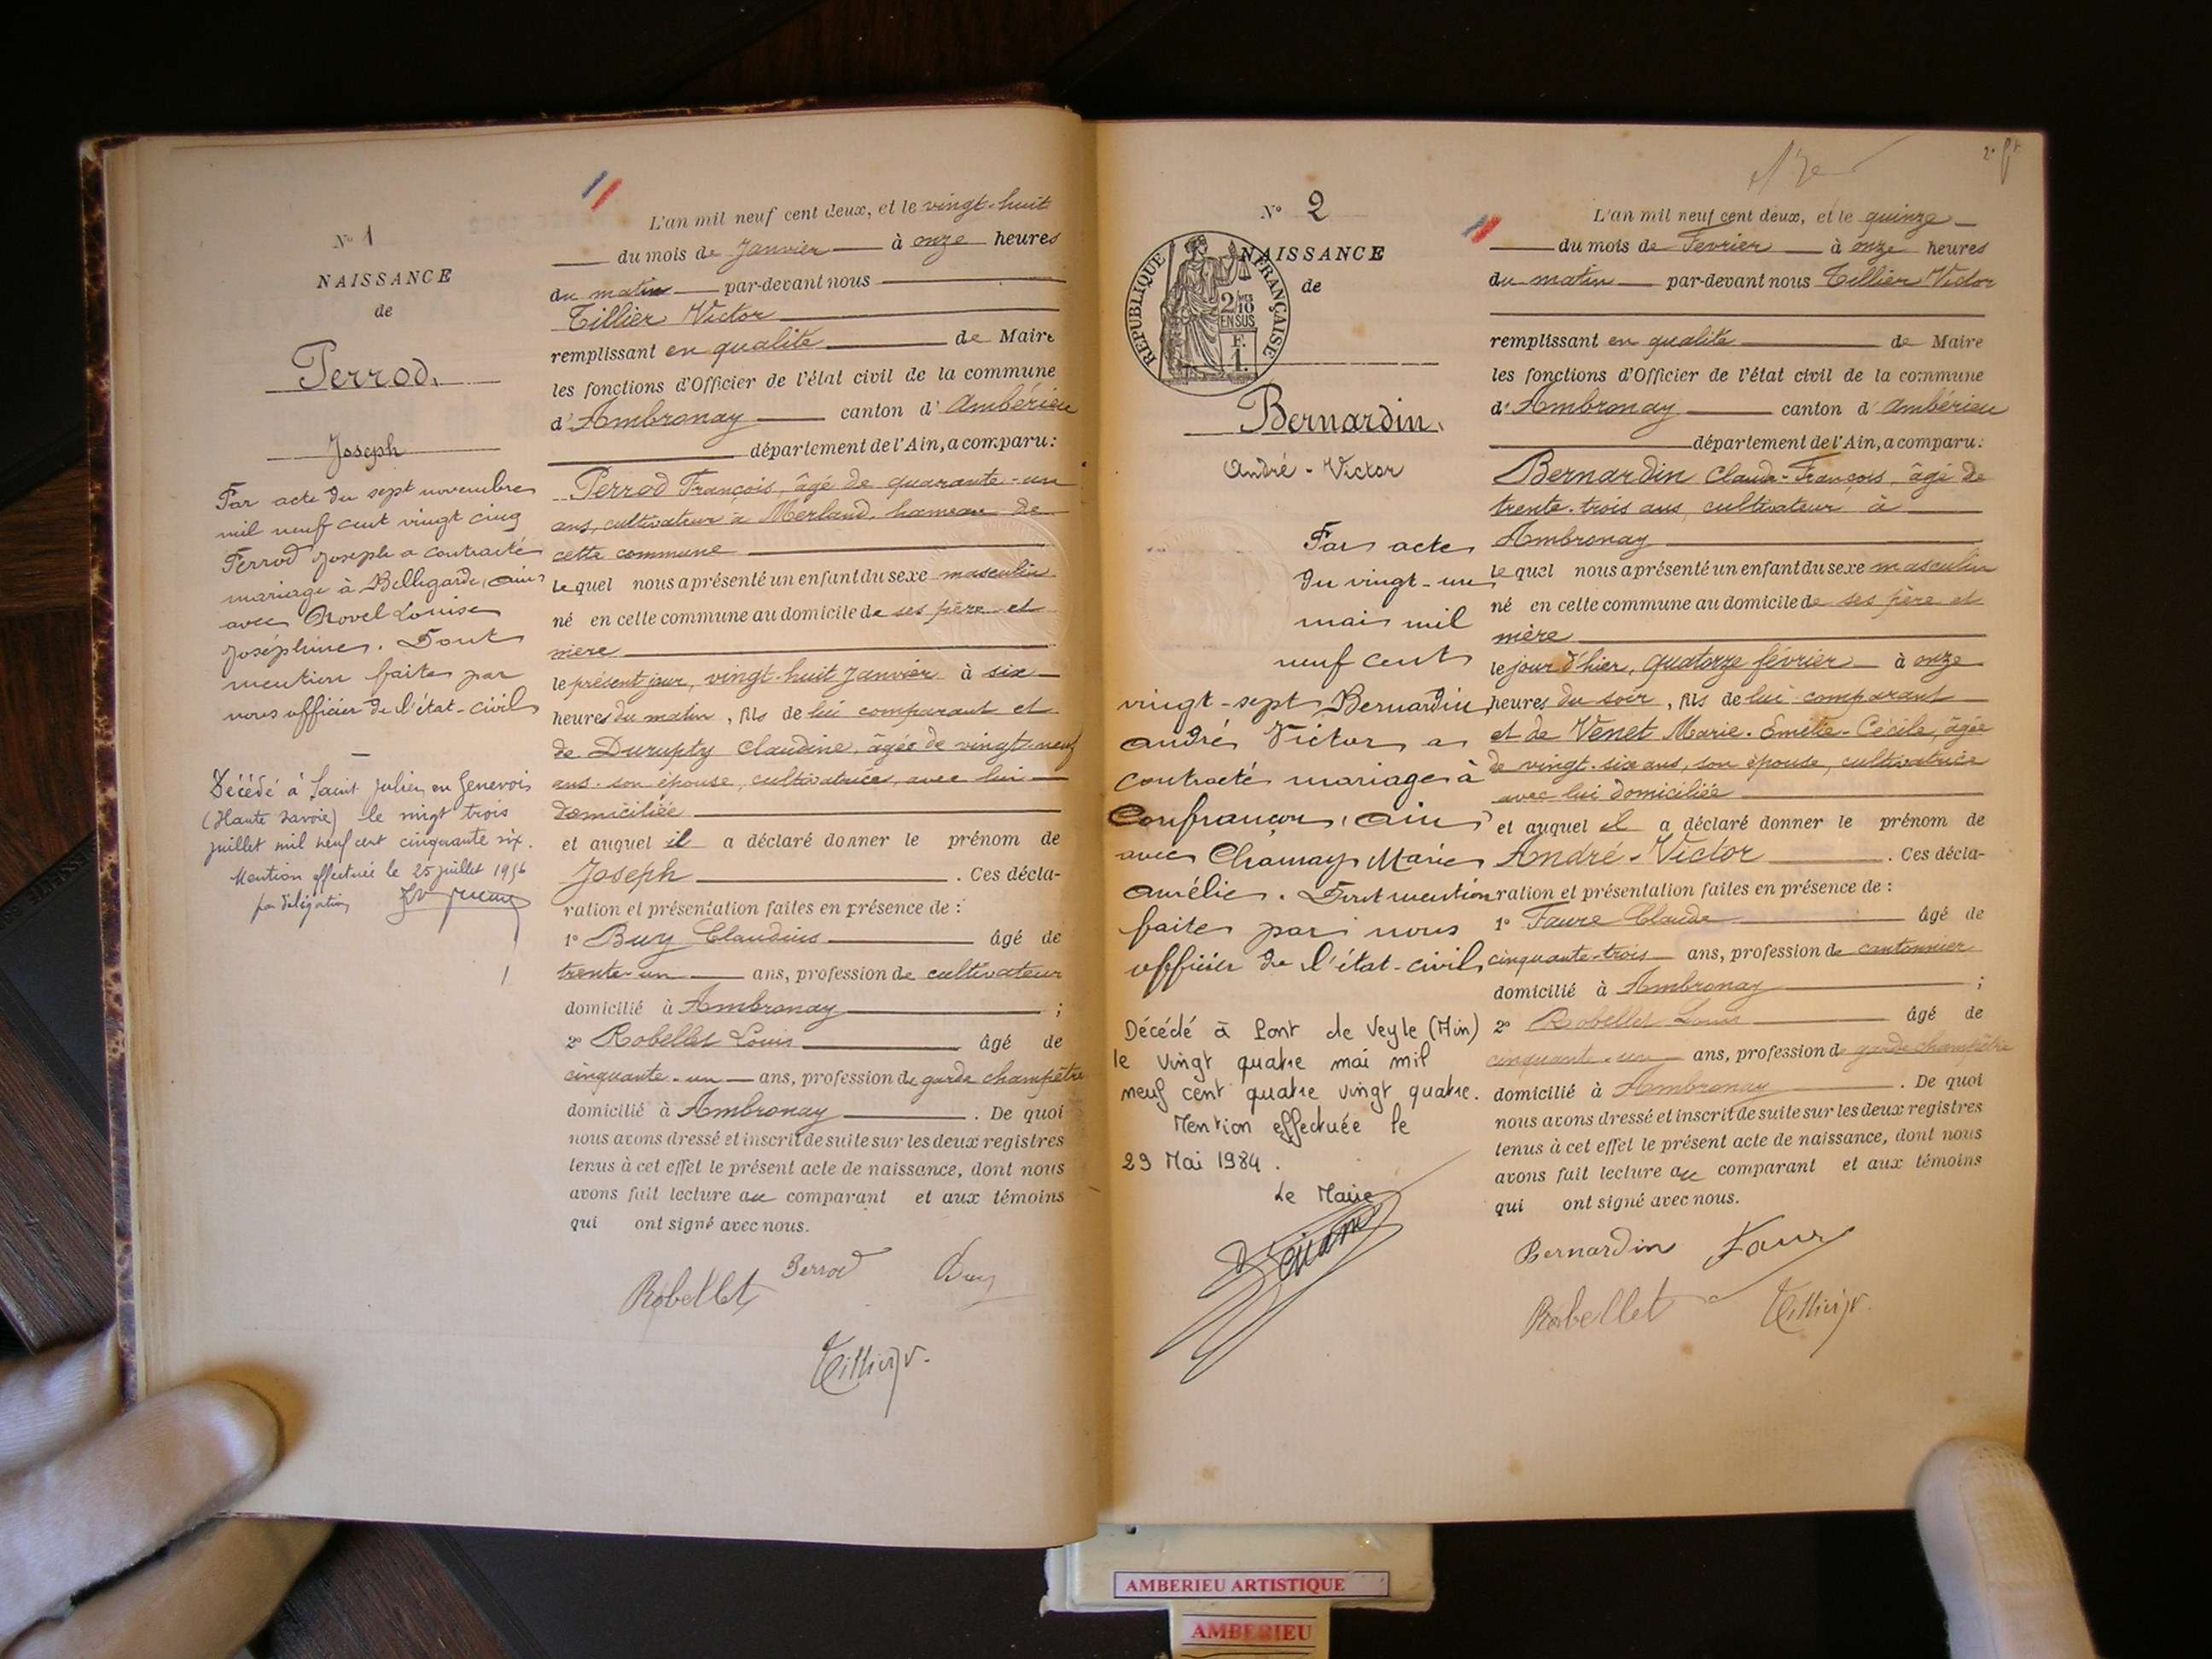 N° 1
NAISSANCE
de
Perrod.
Joseph
Par acte du sept novembre
mil neuf cent vingt cinq
Perrod Joseph a contracté
mariage à Bellegarde, Ain,
avec Novel Louise
Joséphine. Dont
mention faite par
nous officier de l'état-civil
Décédé à Saint Julien en Genevois
(Haute Savoie) le vingt trois
juillet mil neuf cent cinquante six.
Mention effectuée le 25 juillet 1956
par délégation
L'an mil neuf cent deux, et le vingt-huit
du mois de Janvier à onze heures
du matin par-devant nous
Tillier Victor
remplissant en qualité de Maire
les fonctions d'Officier de l'état civil de la commune
d'Ambronay canton d'Ambérieu
département de l'Ain, a comparu:
Perrod François, âgé de quarante-un
ans, cultivateur à Merland, hameau de
cette commune
lequel nous a présenté un enfant du sexe masculin
né en cette commune au domicile de ses père et
mère
le présent jour, vingt-huit Janvier à six
heures du matin, fils de lui comparant et
de Durupty Claudine, âgée de vingt-neuf
ans, son épouse, cultivatrice, avec lui
domiciliée
et auquel il a déclaré donner le prénom de
Joseph . Ces décla-
ration et présentation faites en présence de :
1° Buy Claudius âgé de
trente-un ans, profession de cultivateur
domicilié à Ambronay ;
2° Robellet Louis âgé de
cinquante-un ans, profession de garde champêtre
domicilié à Ambronay . De quoi
nous avons dressé et inscrit de suite sur les deux registres
tenus à cet effet le présent acte de naissance, dont nous
avons fait lecture au comparant et aux témoins
qui ont signé avec nous.
Robellet Perrod Buy
Tillier V.
2e
N° 2
NAISSANCE
de
RÉPUBLIQUE FRANÇAISE
2/10
EN SUS
F.
1
Bernardin.
André-Victor
Par acte
du vingt-un
mai mil
neuf cent
vingt-sept Bernardin
André Victor a
contracté mariage à
Confrançon, Ain,
avec Chamay Marie
Aurélie. Dont mention
faite par nous
officier de l'état-civil
Décédé à Pont de Veyle (Ain)
le vingt quatre mai mil
neuf cent quatre vingt quatre.
Mention effectuée le
29 Mai 1984.
Le Maire
L'an mil neuf cent deux, et le quinze
du mois de Février à onze heures
du matin par-devant nous Tillier Victor
remplissant en qualité de Maire
les fonctions d'Officier de l'état civil de la commune
d'Ambronay canton d'Ambérieu
département de l'Ain, a comparu:
Bernardin Claude-François, âgé de
trente-trois ans, cultivateur à
Ambronay
lequel nous a présenté un enfant du sexe masculin
né en cette commune au domicile de ses père et
mère
le jour d'hier, quatorze février à onze
heures du soir, fils de lui comparant
et de Venet Marie-Emélie-Cécile, âgée
de vingt-six ans, son épouse, cultivatrice
avec lui domiciliée
et auquel il a déclaré donner le prénom de
André-Victor . Ces décla-
ration et présentation faites en présence de :
1° Faure Claude âgé de
cinquante-trois ans, profession de cantonnier
domicilié à Ambronay ;
2° Robellet Louis âgé de
cinquante-un ans, profession de garde champêtre
domicilié à Ambronay . De quoi
nous avons dressé et inscrit de suite sur les deux registres
tenus à cet effet le présent acte de naissance, dont nous
avons fait lecture au comparant et aux témoins
qui ont signé avec nous.
Bernardin Faure
Robellet Tillier V.
AMBERIEU ARTISTIQUE
AMBERIEU